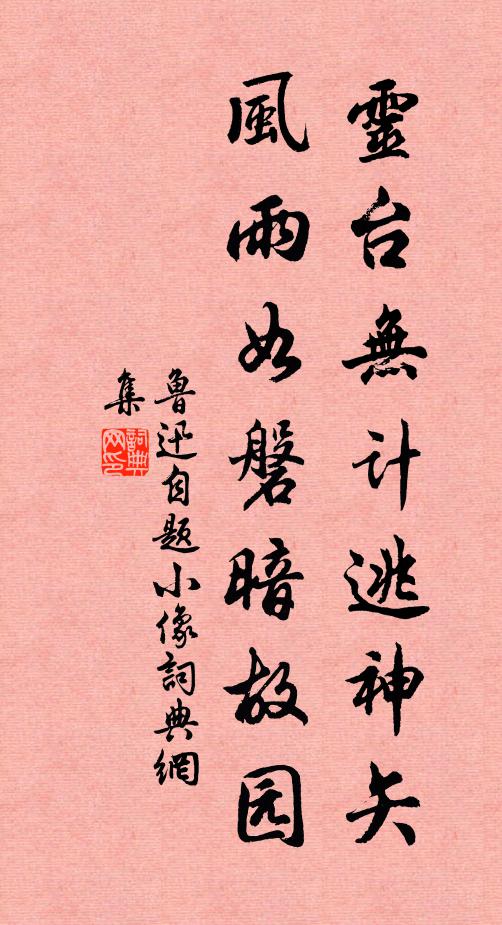 靈台無計逃神矢
風雨如磐暗故园
魯迅自题小像詞典網
集
詞典
网印